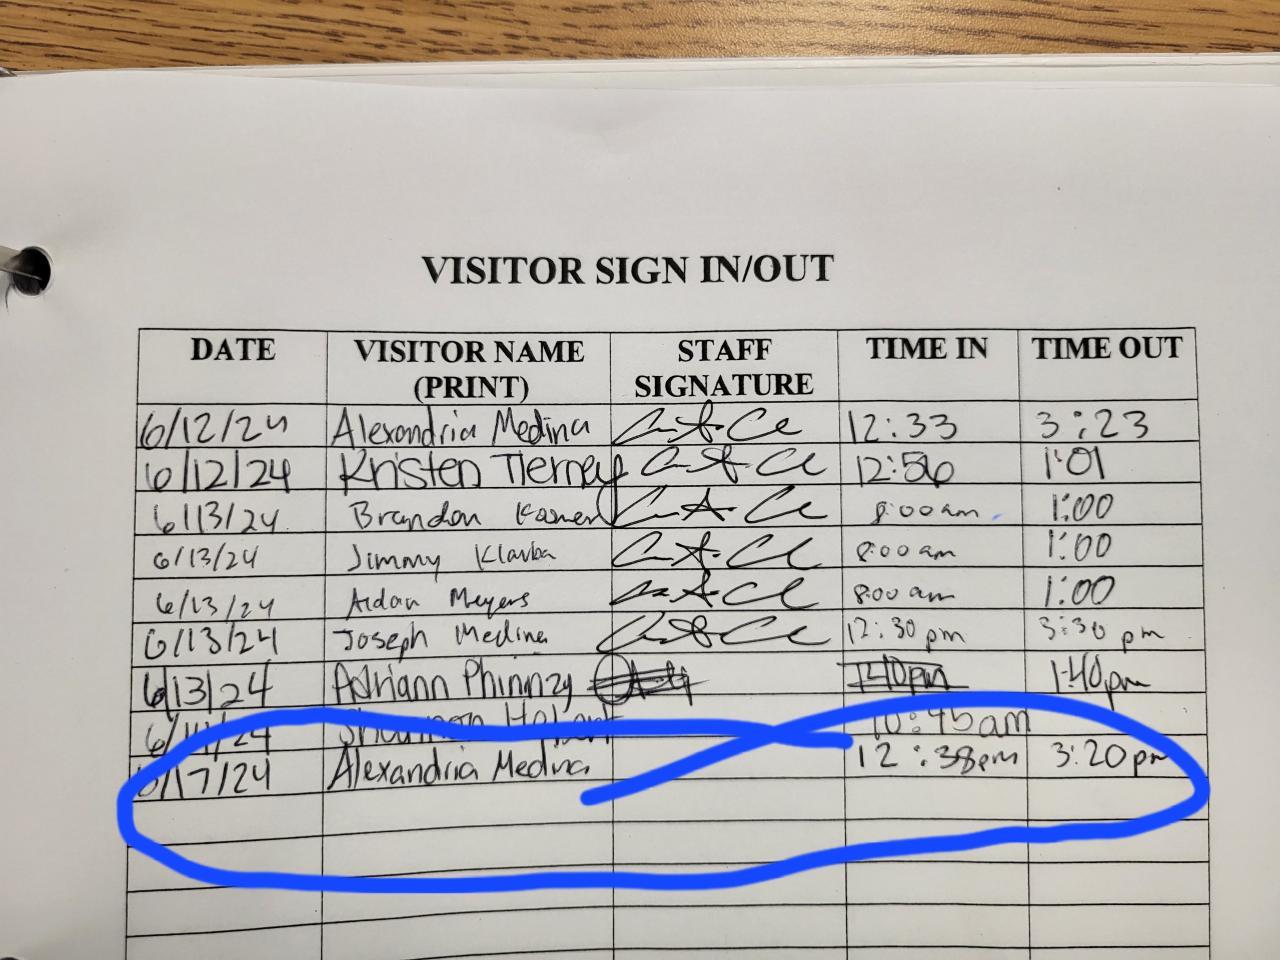 VISITOR SIGN IN/OUT
DATE VISITOR NAME (PRINT) STAFF SIGNATURE TIME IN TIME OUT
6/12/24 Alexandria Medina 12:33 3:23
6/12/24 Kristen Tierney 12:56 1:01
6/13/24 Brandon 8:00am 1:00
6/13/24 Jimmy 8:00am 1:00
6/13/24 Aidan Meyers 8:00am 1:00
6/13/24 Joseph Medina 12:30pm 3:30pm
6/13/24 Adriann Phinnzy 1:40pm 1:40pm
6/14/24 Shannon 10:45am
6/17/24 Alexandria Medina 12:38pm 3:20pm